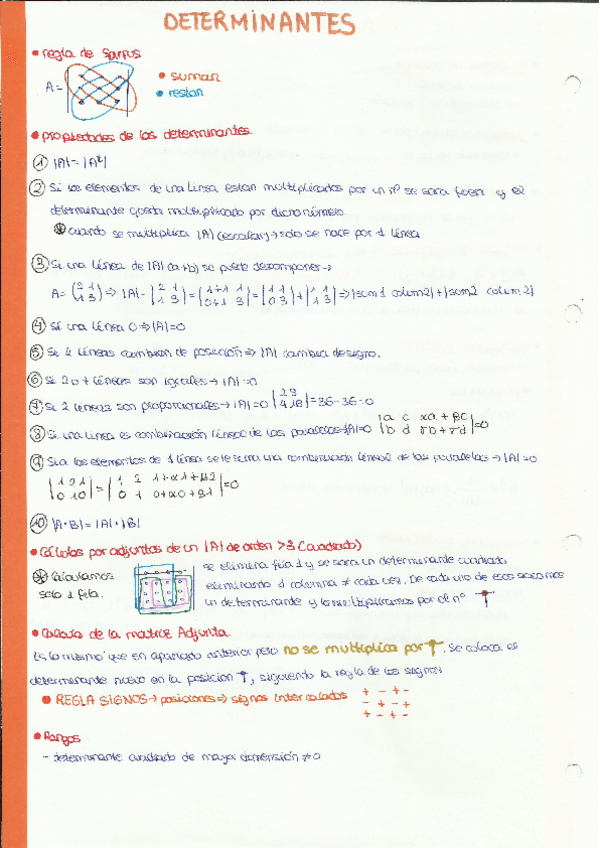 DETERMINANTES
• regla de Sarrus
A=
• suman
• restan
• propiedades de los determinantes.
① |A|=|Aᵗ|
② Si los elementos de una línea están multiplicados por un nº se saca fuera y el
determinante queda multiplicado por dicho número.
⊛ cuando se multiplica |A| (escalar) → solo se hace por 1 línea
③ Si una línea de |A| (a+b) se puede descomponer →
A= (2 1 / 1 3) ⇒ |A|= |2 1 / 1 3| = |1+1 1 / 0+1 3| = |1 1 / 0 3| + |1 1 / 1 3| ⇒ |sum1 colum2| + |sum2 colum2|
④ Si una línea 0 ⇒ |A|=0
⑤ Si 2 líneas cambian de posición ⇒ |A| cambia de signo.
⑥ Si 2 o + líneas son iguales → |A|=0
⑦ Si 2 líneas son proporcionales → |A|=0 |2 9 / 4 18| = 36-36=0
⑧ Si una línea es combinación lineal de las paralelas → |A|=0 |a c αa+βc / b d αb+βd| =0
⑨ Si a los elementos de 1 línea se le suma una combinación lineal de las paralelas → |A|=0
|1 2 1 / 0 1 0| = |1 2 1+α1+β2 / 0 1 0+α0+β1| =0
⑩ |A·B|=|A|·|B|
• Cálculos por adjuntos de un |A| de orden >3 (cuadrado)
⊛ Calculamos
solo 1 fila.
se elimina fila 1 y se saca un determinante cuadrado
eliminando 1 columna ≠ cada vez. De cada uno de esos sacamos
un determinante y lo multiplicamos por el nº ↑
• Calculo de la matriz Adjunta.
Es lo mismo que en apartado anterior pero no se multiplica por ↑. Se coloca el
determinante nuevo en la posición ↑, siguiendo la regla de los signos
• REGLA SIGNOS → posiciones ⇒ signos intercalados
+ - + -
- + - +
+ - + -
• Rangos
- determinante cuadrado de mayor dimensión ≠ 0